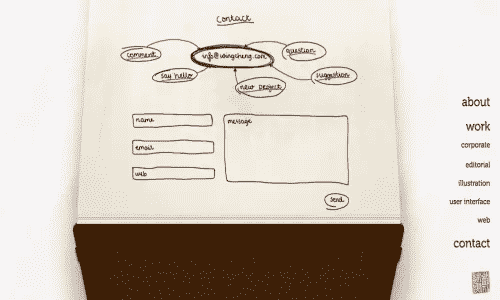 contact
comment
info@wingcheng.com
question
say hello
suggestion
new project
name
message
email
web
send
about
work
corporate
editorial
illustration
user interface
web
contact